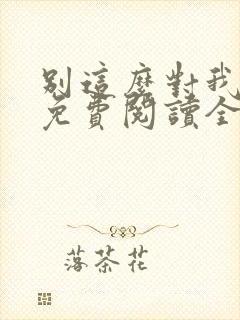 別這麼對我
免費閱讀全
落茶花